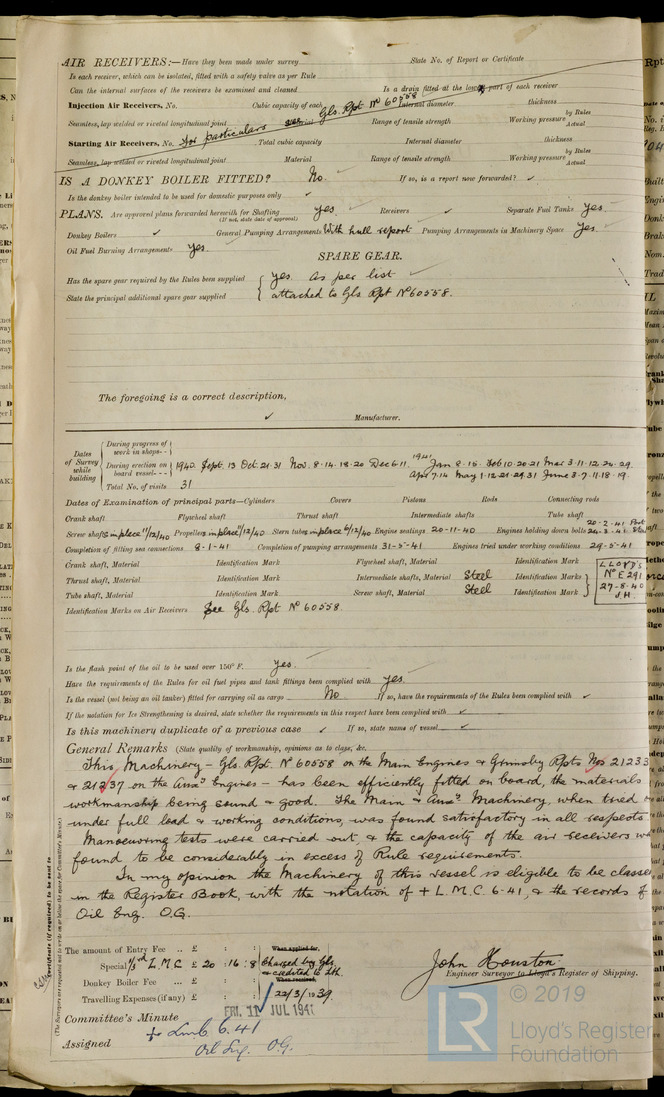 AIR RECEIVERS:— Have they been made under survey State No. of Report or Certificate
Is each receiver, which can be isolated, fitted with a safety valve as per Rule
Can the internal surfaces of the receivers be examined and cleaned Is a drain fitted at the lowest part of each receiver
Injection Air Receivers, No. Cubic capacity of each Internal diameter thickness
Gls. Rpt No 60558
Seamless, lap welded or riveted longitudinal joint Material Range of tensile strength Working pressure by Rules Actual
for particulars see
Starting Air Receivers, No. Total cubic capacity Internal diameter thickness
Seamless, lap welded or riveted longitudinal joint Material Range of tensile strength Working pressure by Rules Actual
IS A DONKEY BOILER FITTED? No. If so, is a report now forwarded? ✓
Is the donkey boiler intended to be used for domestic purposes only ✓
PLANS. Are approved plans forwarded herewith for Shafting yes. Receivers ✓ Separate Fuel Tanks Yes.
(If not, state date of approval)
Donkey Boilers ✓ General Pumping Arrangements With hull report Pumping Arrangements in Machinery Space Yes.
Oil Fuel Burning Arrangements Yes.
SPARE GEAR.
Has the spare gear required by the Rules been supplied yes. As per list
State the principal additional spare gear supplied attached to Gls Rpt No 60558.
The foregoing is a correct description,
✓ Manufacturer.
Dates of Survey while building
During progress of work in shops - -
During erection on board vessel - - - 1940. Sept. 13 Oct. 21. 31 Nov. 8. 14. 18. 20 Dec 6. 11. 1941 Jan 8. 15. Feb 10. 20. 21 Mar 3. 11. 12. 24. 29.
Apr 7. 14 May 1. 12. 21. 29. 31 June 3. 7. 11. 18. 19.
Total No. of visits 31
Dates of Examination of principal parts—Cylinders Covers Pistons Rods Connecting rods
Crank shaft Flywheel shaft Thrust shaft Intermediate shafts Tube shaft
Screw shaft in place 11/12/40 Propeller in place 11/12/40 Stern tube in place 6/12/40 Engine seatings 20-11-40 Engines holding down bolts 20-2-41 Port 24-3-41 Star
Completion of fitting sea connections 8-1-41 Completion of pumping arrangements 31-5-41 Engines tried under working conditions 29-5-41
Crank shaft, Material Identification Mark Flywheel shaft, Material Identification Mark
Thrust shaft, Material Identification Mark Intermediate shafts, Material Steel Identification Marks
Tube shaft, Material Identification Mark Screw shaft, Material Steel Identification Mark
LLOYD'S
No E 291
27-8-40
J.H.
Identification Marks on Air Receivers See Gls. Rpt No 60558.
Is the flash point of the oil to be used over 150° F. Yes.
Have the requirements of the Rules for oil fuel pipes and tank fittings been complied with yes.
Is the vessel (not being an oil tanker) fitted for carrying oil as cargo No If so, have the requirements of the Rules been complied with ✓
If the notation for Ice Strengthening is desired, state whether the requirements in this respect have been complied with ✓
Is this machinery duplicate of a previous case ✓ If so, state name of vessel ✓
General Remarks (State quality of workmanship, opinions as to class, &c.
This Machinery - Gls. Rpt. No 60558 on the Main Engines & Grimsby Rpts Nos 21233
& 21237 on the Auxy Engines - has been efficiently fitted on board, the materials
workmanship being sound & good. The Main & Auxy Machinery, when tried
under full load & working conditions, was found satisfactory in all respects
Manoeuvring tests were carried out, & the capacity of the air receivers
found to be considerably in excess of Rule requirements.
In my opinion the Machinery of this vessel is eligible to be classed
in the Register Book, with the notation of + L.M.C. 6-41, & the records of
Oil Eng. O.G.
The amount of Entry Fee .. £ : :
Special 1/3rd L.M.C £ 20 : 16 : 8
Donkey Boiler Fee ... £ : :
Travelling Expenses (if any) £ : :
When applied for,
Charged by Gls.
& credited to Lth.
When received,
22/3/1939.
John Houston
Engineer Surveyor to Lloyd's Register of Shipping.
Committee's Minute FRI. 11 JUL 1941
+ Lmb 6.41
Assigned Oil Eng. O.G.
Certificate (if required) to be sent to
(The Surveyors are requested not to write on or below the space for Committee's Minute.)
LR © 2019
Lloyd's Register
Foundation